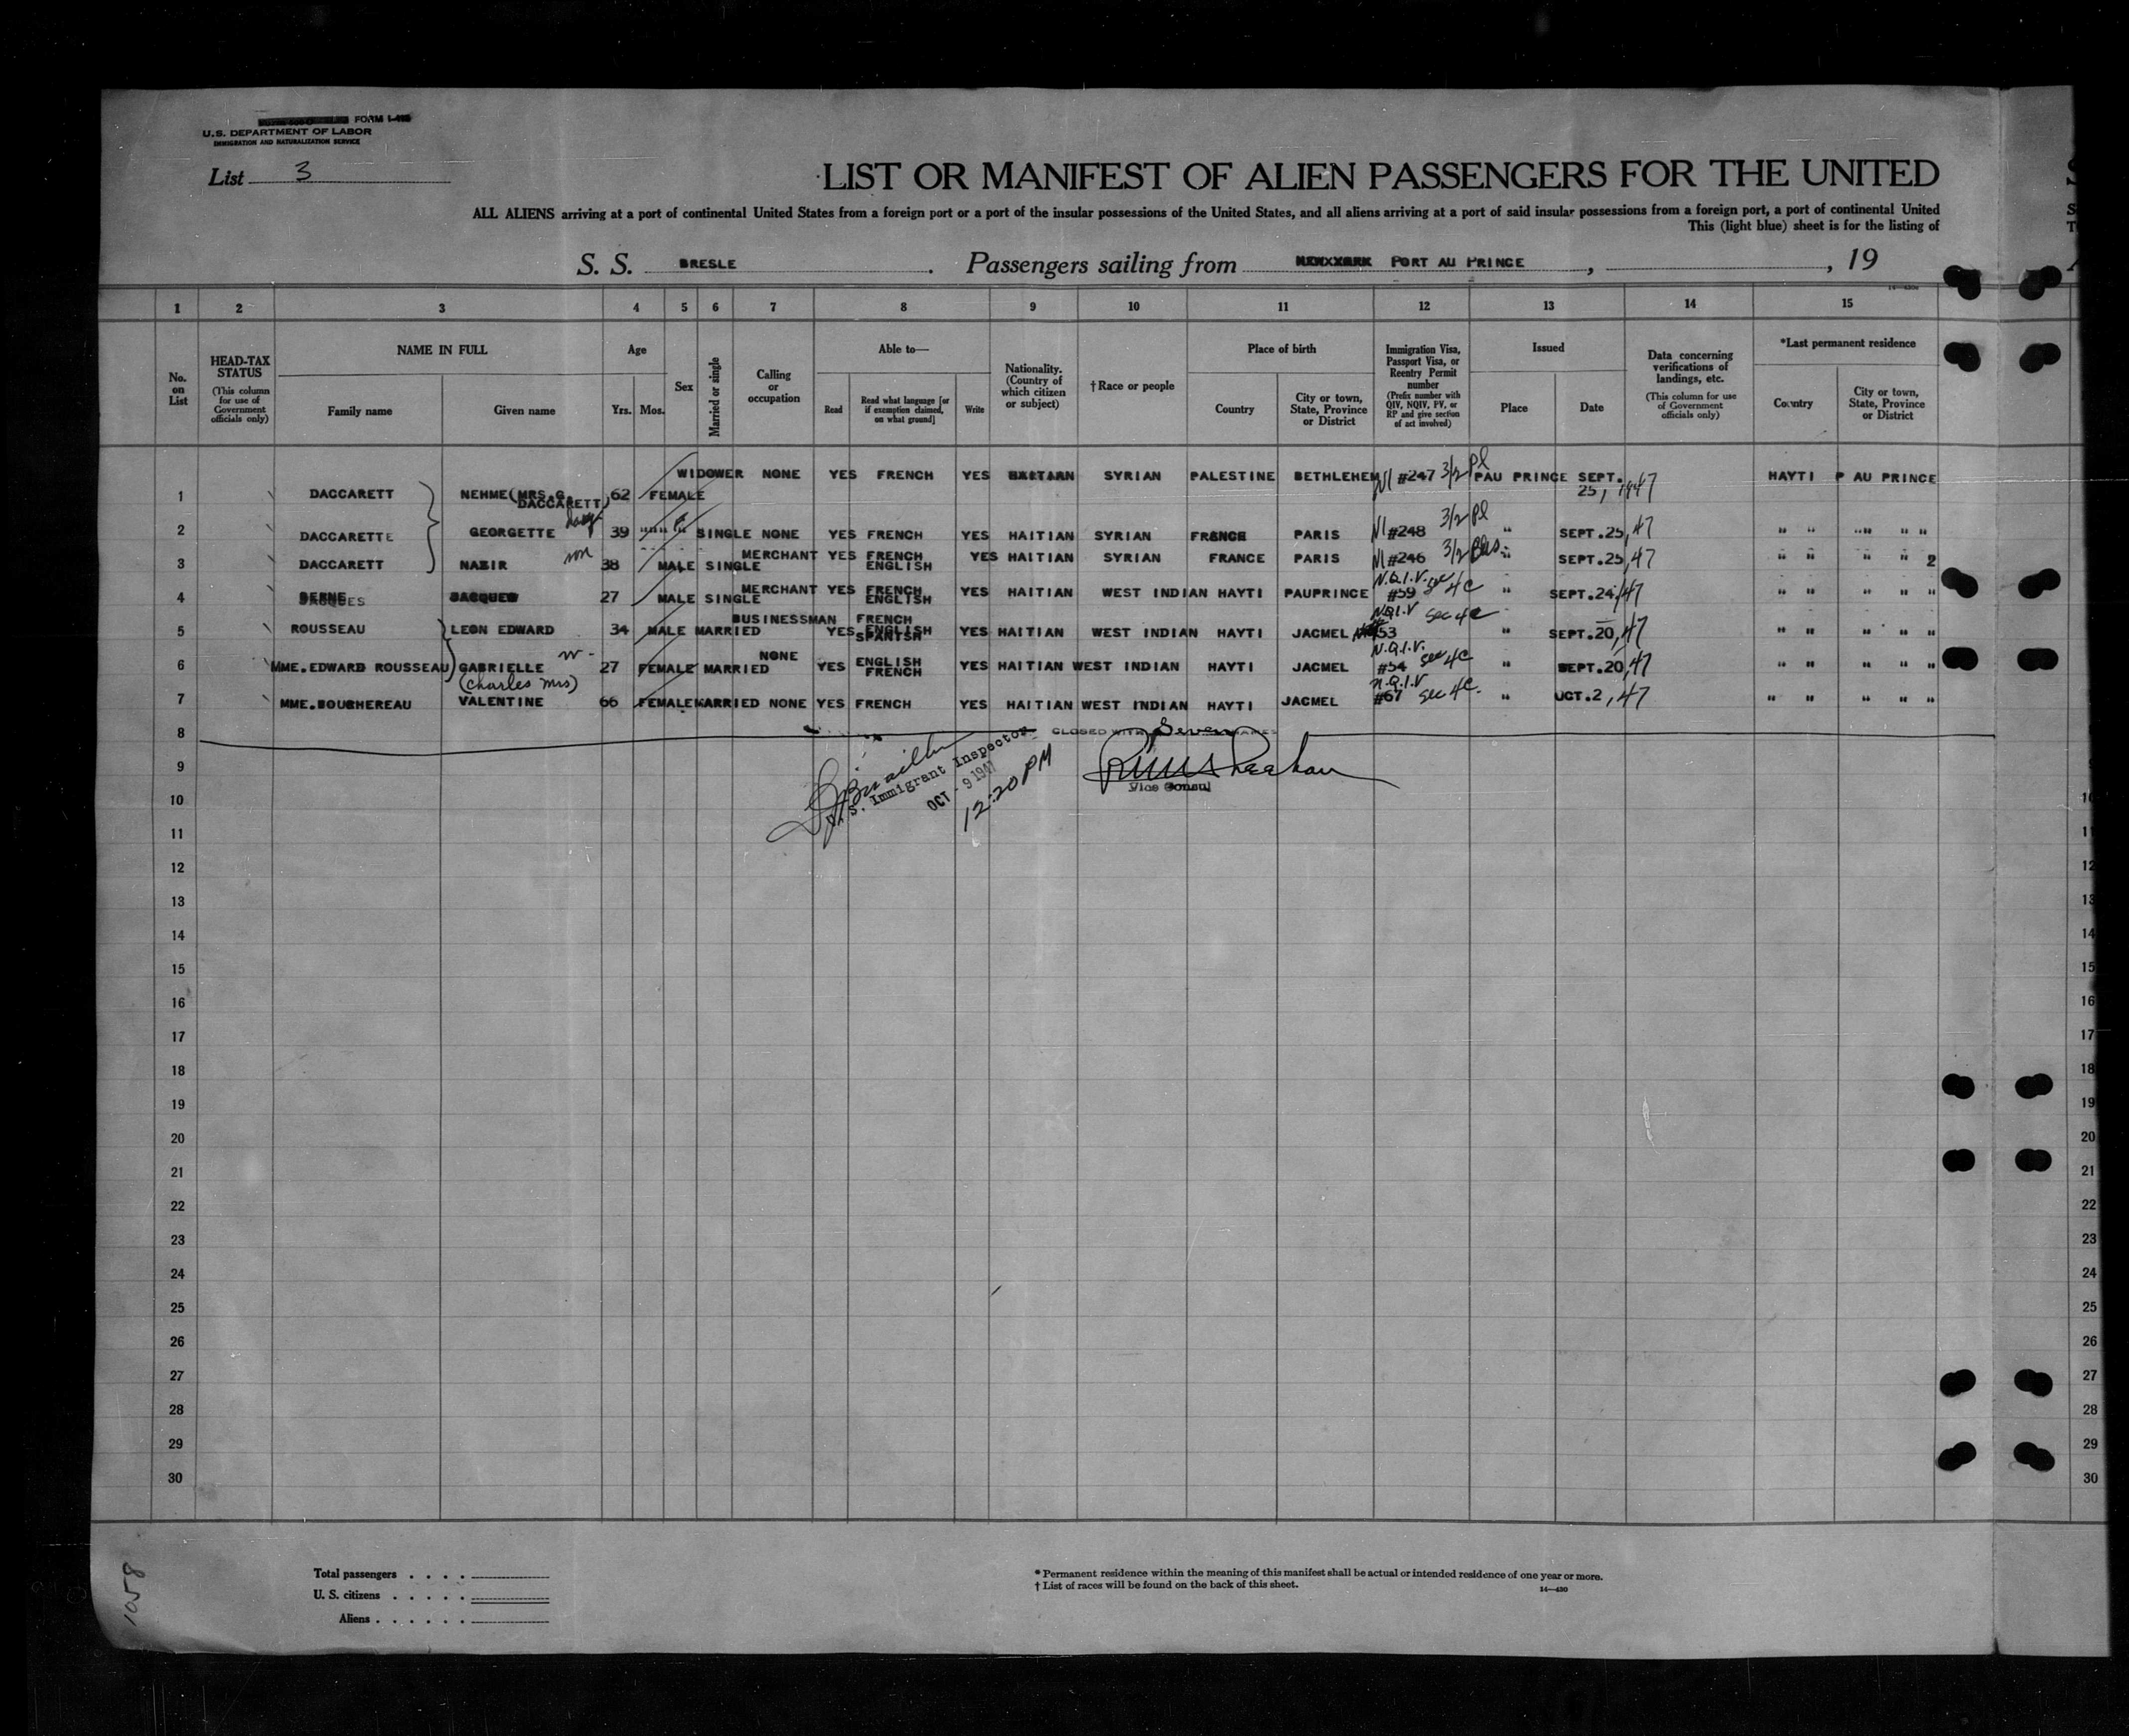 FORM I-415
U.S. DEPARTMENT OF LABOR
IMMIGRATION AND NATURALIZATION SERVICE
List 3
LIST OR MANIFEST OF ALIEN PASSENGERS FOR THE UNITED
ALL ALIENS arriving at a port of continental United States from a foreign port or a port of the insular possessions of the United States, and all aliens arriving at a port of said insular possessions from a foreign port, a port of continental United
This (light blue) sheet is for the listing of
S. S. BRESLE. Passengers sailing from PORT AU PRINCE, , 19
1 2 3 4 5 6 7 8 9 10 11 12 13 14 15
No. on List
HEAD-TAX STATUS (This column for use of Government officials only)
NAME IN FULL
Family name
Given name
Age
Yrs. Mos.
Sex
Married or single
Calling or occupation
Able to—
Read
Read what language [or if exemption claimed, on what ground]
Write
Nationality. (Country of which citizen or subject)
†Race or people
Place of birth
Country
City or town, State, Province or District
Immigration Visa, Passport Visa, or Reentry Permit number (Prefix number with QIV, NQIV, PV, or RP and give section of act involved)
Issued
Place
Date
Data concerning verifications of landings, etc. (This column for use of Government officials only)
*Last permanent residence
Country
City or town, State, Province or District
1 DACCARETT NEHME (MRS.G. DACCARETT) 62 FEMALE WIDOWER NONE YES FRENCH YES HAITIAN SYRIAN PALESTINE BETHLEHEM #247 3/2 Pl PAU PRINCE SEPT. 25, 1947 HAYTI P AU PRINCE
2 DACCARETTE GEORGETTE 39 " SINGLE NONE YES FRENCH YES HAITIAN SYRIAN FRANCE PARIS #248 3/2 Pl " SEPT.25,47 " " " " "
3 DACCARETT NAZIR son 38 MALE SINGLE MERCHANT YES FRENCH ENGLISH YES HAITIAN SYRIAN FRANCE PARIS #246 3/2 " SEPT.25,47 " " " " 2
4 JACQUES 27 MALE SINGLE MERCHANT YES FRENCH ENGLISH YES HAITIAN WEST INDIAN HAYTI PAUPRINCE N.Q.I.V. #59 sec 4c " SEPT.24,47 " " " " "
5 ROUSSEAU LEON EDWARD 34 MALE MARRIED BUSINESSMAN YES FRENCH ENGLISH SPANISH YES HAITIAN WEST INDIAN HAYTI JACMEL N.Q.I.V 53 sec 4c " SEPT.20,47 " " " " "
6 MME.EDWARD ROUSSEAU GABRIELLE w - 27 FEMALE MARRIED NONE YES ENGLISH FRENCH YES HAITIAN WEST INDIAN HAYTI JACMEL N.Q.I.V. #54 sec 4c " SEPT.20,47 " " " " "
7 MME.BOUCHEREAU (Charles Mrs) VALENTINE 66 FEMALE MARRIED NONE YES FRENCH YES HAITIAN WEST INDIAN HAYTI JACMEL N.Q.I.V #67 sec 4c. " OCT.2,47 " " " " "
8 CLOSED WITH Seven NAMES
9
U. S. Immigrant Inspector
OCT - 9 1947
12:20 PM
Vice Consul
10
11
12
13
14
15
16
17
18
19
20
21
22
23
24
25
26
27
28
29
30
Total passengers . . . .
U. S. citizens . . . . .
Aliens . . . . . .
* Permanent residence within the meaning of this manifest shall be actual or intended residence of one year or more.
† List of races will be found on the back of this sheet.
14—430
1058